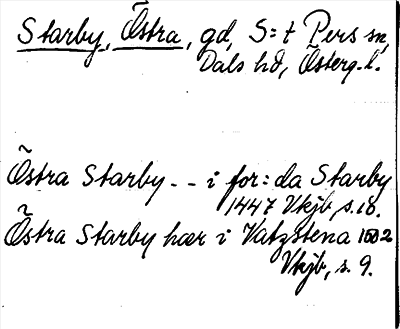 Starby, Östra, gd, S:t Pers sn,
Dals hd, Österg. l.
Östra Starby -- i for:da Starby
1447 Vkjb, s. 18.
Östra Starby hær i Vatzstena 1502
Vkjb, s. 9.